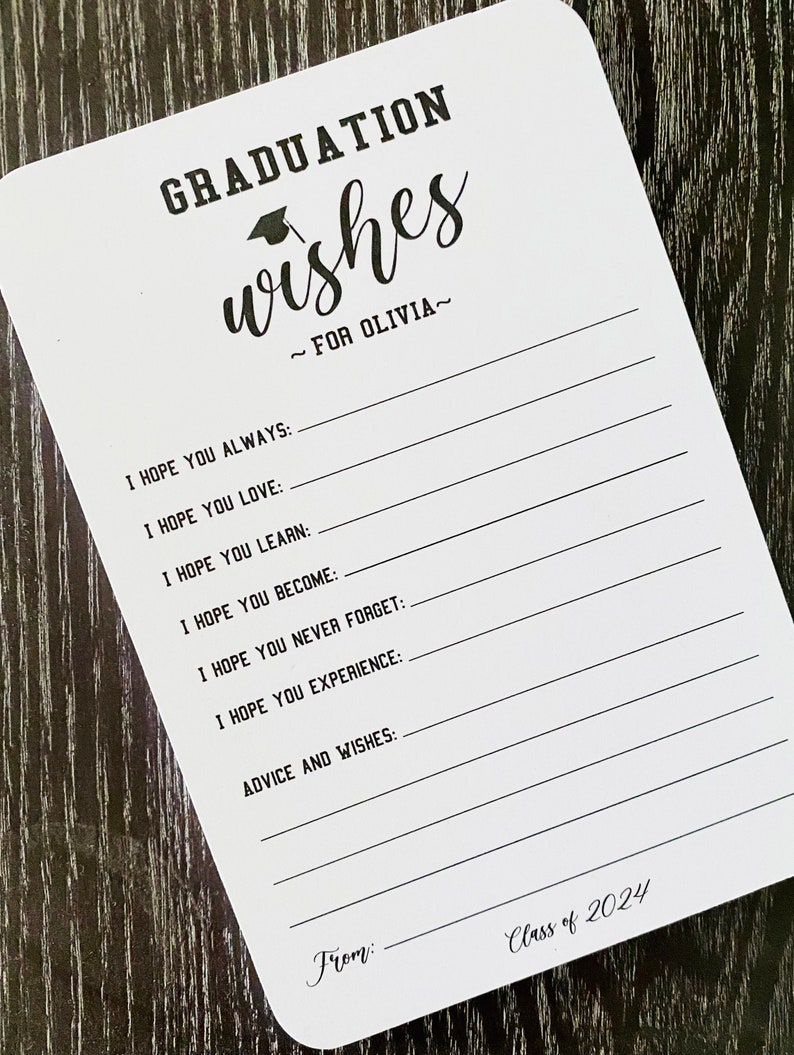 GRADUATION
wishes
~ FOR OLIVIA~
I HOPE YOU ALWAYS:
I HOPE YOU LOVE:
I HOPE YOU LEARN:
I HOPE YOU BECOME:
I HOPE YOU NEVER FORGET:
I HOPE YOU EXPERIENCE:
ADVICE AND WISHES:
From:
Class of 2024